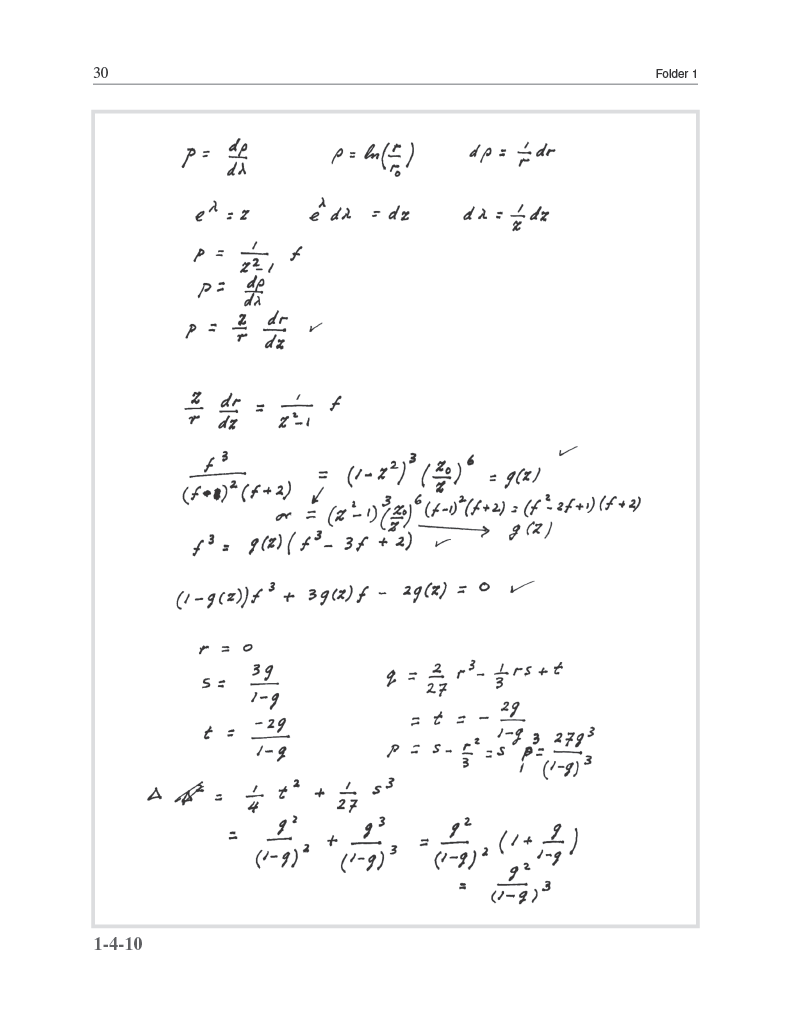 30 Folder 1
p = dρ/dλ ρ = ln(r/r₀) dρ = 1/r dr
e^λ = z e^λ dλ = dz dλ = 1/z dz
p = 1/(z²-1) f
p = dρ/dλ
p = z/r dr/dz ✓
z/r dr/dz = 1/(z²-1) f
f³/((f-1)²(f+2)) = (1-z²)³ (z₀/z)⁶ = g(z) ✓
or = (z²-1)³ (z₀/z)⁶ (f-1)²(f+2) = (f²-2f+1)(f+2)
f³ = g(z)(f³ - 3f + 2) ✓ → g(z)
(1-g(z))f³ + 3g(z)f - 2g(z) = 0 ✓
r = 0
s = 3g/(1-g) q = 2/27 r³ - 1/3 rs + t
t = -2g/(1-g) = t = - 2g/(1-g)
p = s - r²/3 = s p³ = 27g³/(1-g)³
Δ = 1/4 t² + 1/27 s³
= g²/(1-g)² + g³/(1-g)³ = g²/(1-g)² (1 + g/(1-g))
= g²/(1-g)³
1-4-10